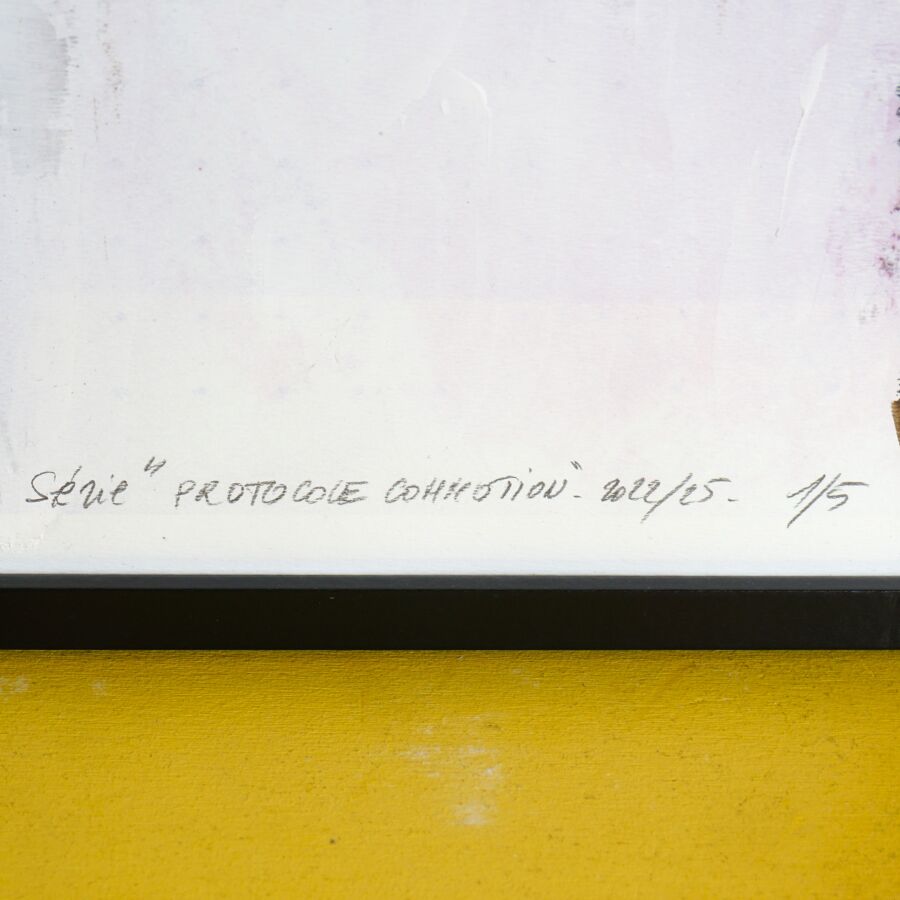 Série " PROTOCOLE COMMOTION". 2022/25. 1/5